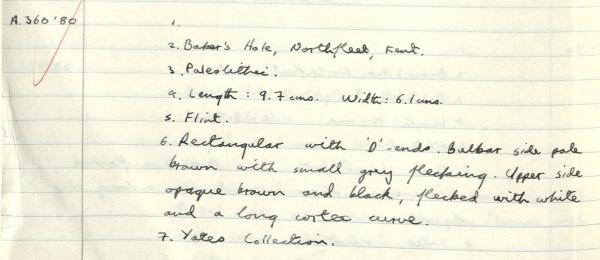 A.360'80
1.
2. Baker's Hole, Northfleet, Kent.
3. Paleolithic.
4. Length : 9.7 cms. Width : 6.1 cms.
5. Flint.
6. Rectangular with 'D'-ends. Bulbar side pale
brown with small grey flecking. Upper side
opaque brown and black, flecked with white
and a long cortex curve.
7. Yates Collection.